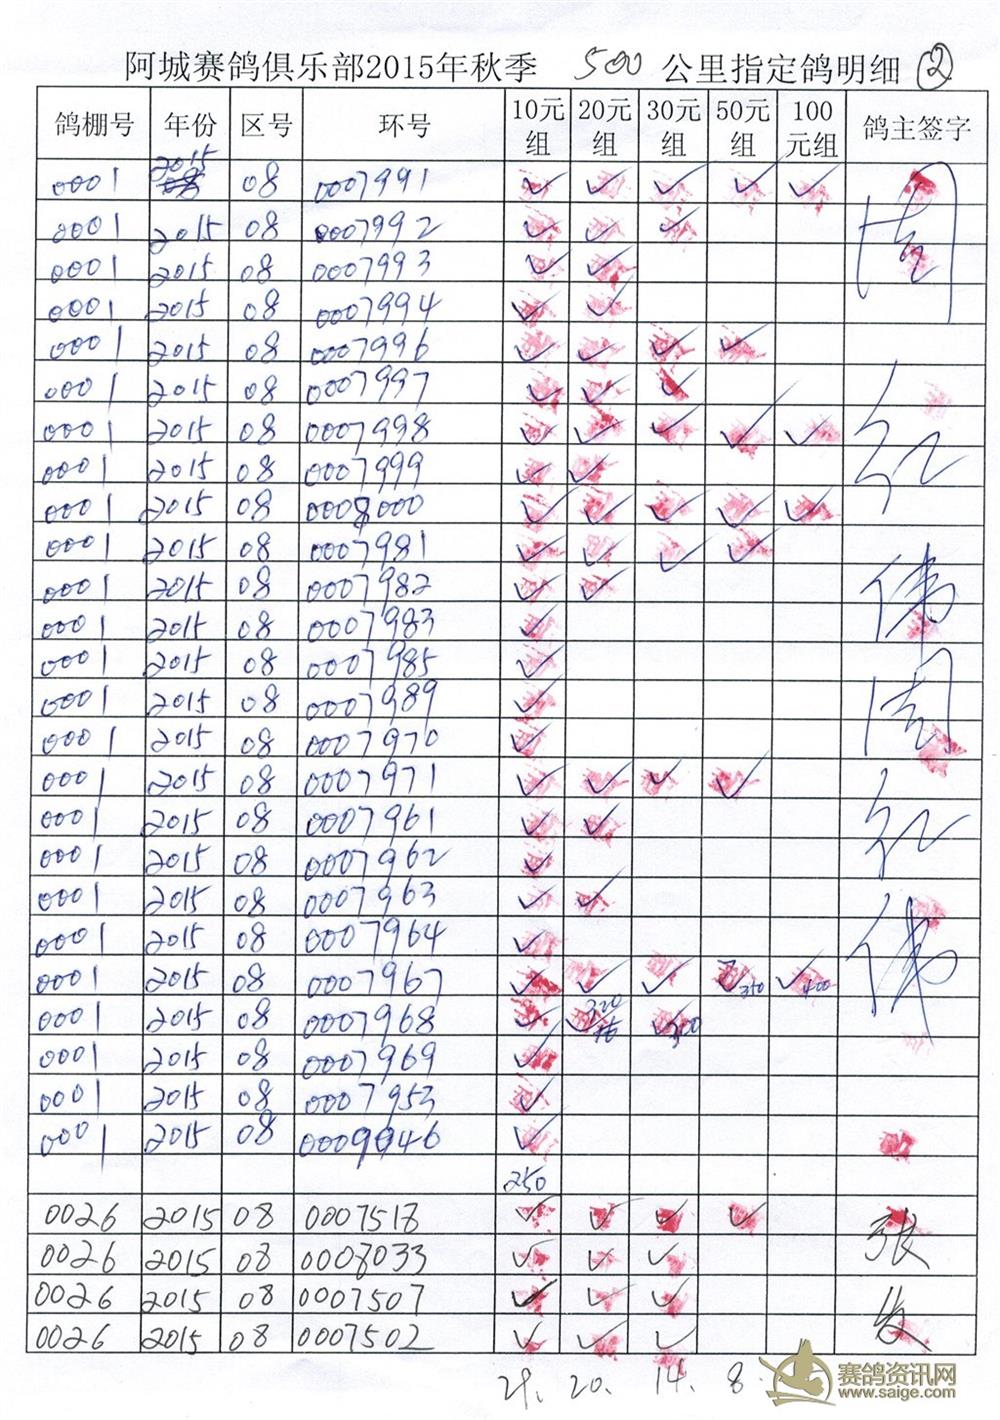 阿城赛鸽俱乐部2015年秋季 500 公里指定鸽明细 ②
鸽棚号 年份 区号 环号 10元组 20元组 30元组 50元组 100元组 鸽主签字
0001 2015 08 0007991 ✓ ✓ ✓ ✓ ✓ 周
0001 2015 08 0007992 ✓ ✓ ✓
0001 2015 08 0007993 ✓ ✓
0001 2015 08 0007994 ✓ ✓
0001 2015 08 0007996 ✓ ✓ ✓ ✓
0001 2015 08 0007997 ✓ ✓ ✓
0001 2015 08 0007998 ✓ ✓ ✓ ✓ ✓ 红
0001 2015 08 0007999 ✓ ✓
0001 2015 08 0008000 ✓ ✓ ✓ ✓ ✓
0001 2015 08 0007981 ✓ ✓ ✓ ✓
0001 2015 08 0007982 ✓ ✓ 伟
0001 2015 08 0007983 ✓
0001 2015 08 0007985 ✓
0001 2015 08 0007989 ✓ 周
0001 2015 08 0007970 ✓
0001 2015 08 0007971 ✓ ✓ ✓ ✓
0001 2015 08 0007961 ✓ ✓ 红
0001 2015 08 0007962 ✓
0001 2015 08 0007963 ✓ ✓
0001 2015 08 0007964 ✓ 伟
0001 2015 08 0007967 ✓ ✓ ✓ ✓ 350 ✓ 400
0001 2015 08 0007968 ✓ ✓ 320 16 ✓ 300
0001 2015 08 0007969 ✓
0001 2015 08 0007953 ✓
0001 2015 08 0009946 ✓
250
0026 2015 08 0007518 ✓ ✓ ✓ ✓ 张
0026 2015 08 0008033 ✓ ✓ ✓
0026 2015 08 0007507 ✓ ✓ ✓ 发
0026 2015 08 0007502 ✓ ✓ ✓
29. 20. 14. 8.
赛鸽资讯网
www.saige.com